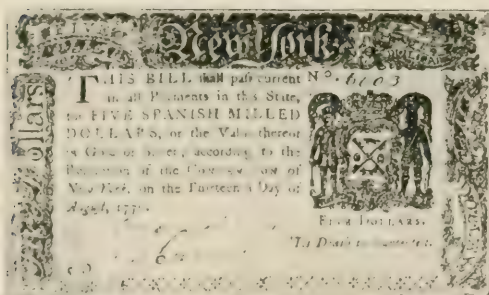 FIVE
New York
Dollars
THIS BILL shall pass current
in all Payments in this State,
for FIVE SPANISH MILLED
DOLLARS, or the Value thereof
in Gold or Silver, according to the
of the
New York, on the Thirteenth Day of
August,
No. 6103
FIVE DOLLARS.
'Tis Death to counterfeit.